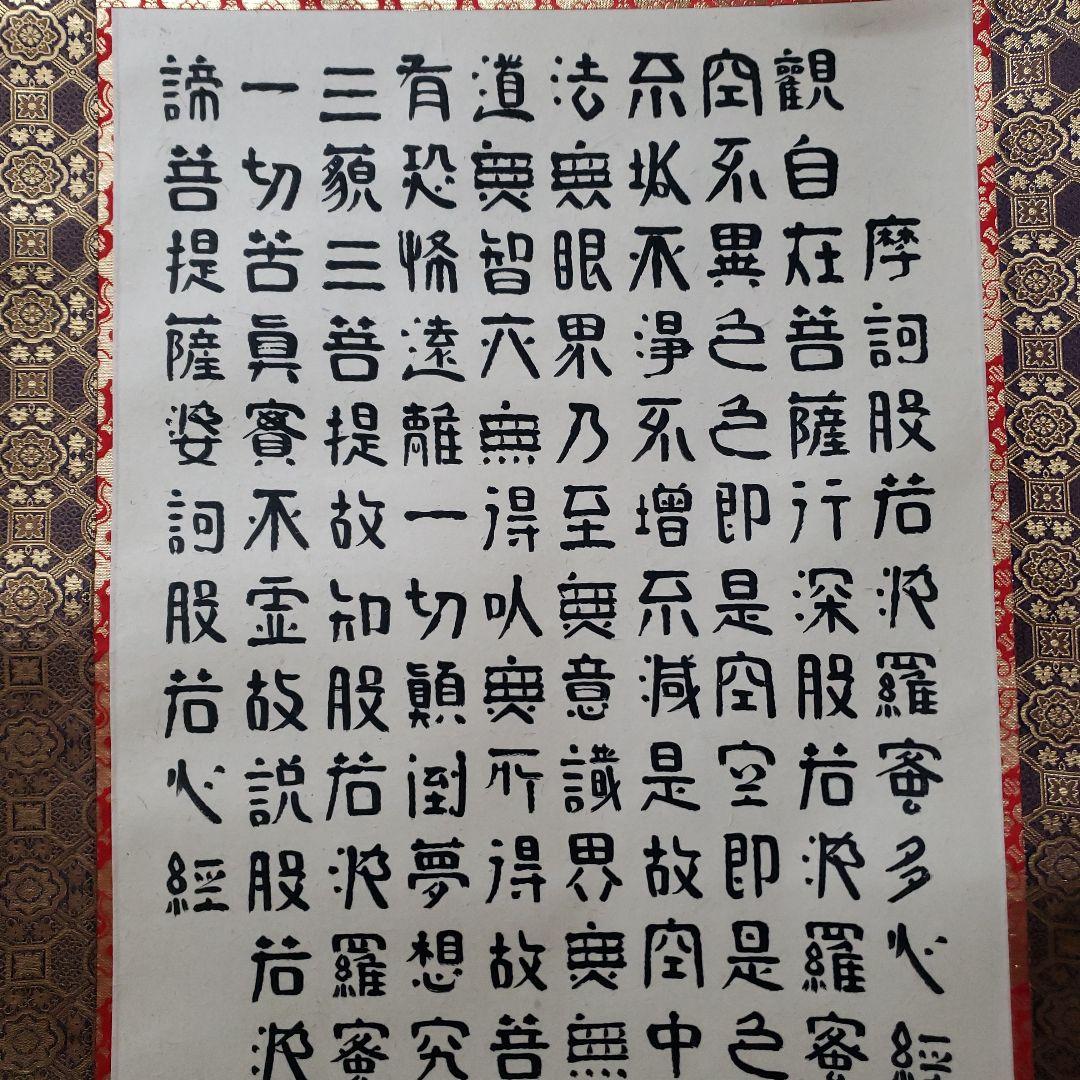 摩訶般若波羅蜜多心經
觀自在菩薩行深般若波羅蜜
空不異色色即是空空即是色
不垢不淨不增不減是故空中
法無眼界乃至無意識界無無
道無智亦無得以無所得故菩
有恐怖遠離一切顛倒夢想究
三藐三菩提故知般若波羅蜜
一切苦真實不虛故說般若波
諦菩提薩婆訶般若心經